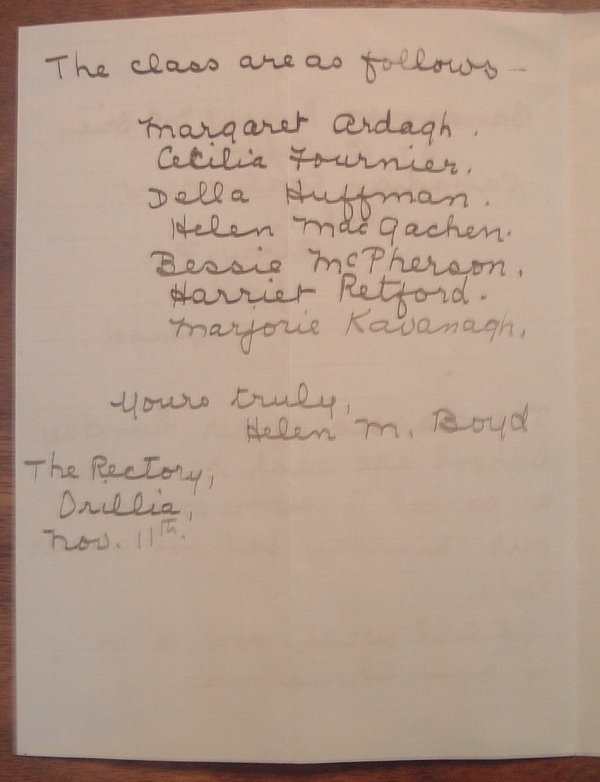 The class are as follows —
Margaret Ardagh.
Cecilia Fournier.
Della Huffman.
Helen MacGachen.
Bessie McPherson,
Harriet Retford.
Marjorie Kavanagh,
Yours truly,
Helen M. Boyd
The Rectory,
Orillia,
Nov. 11th.